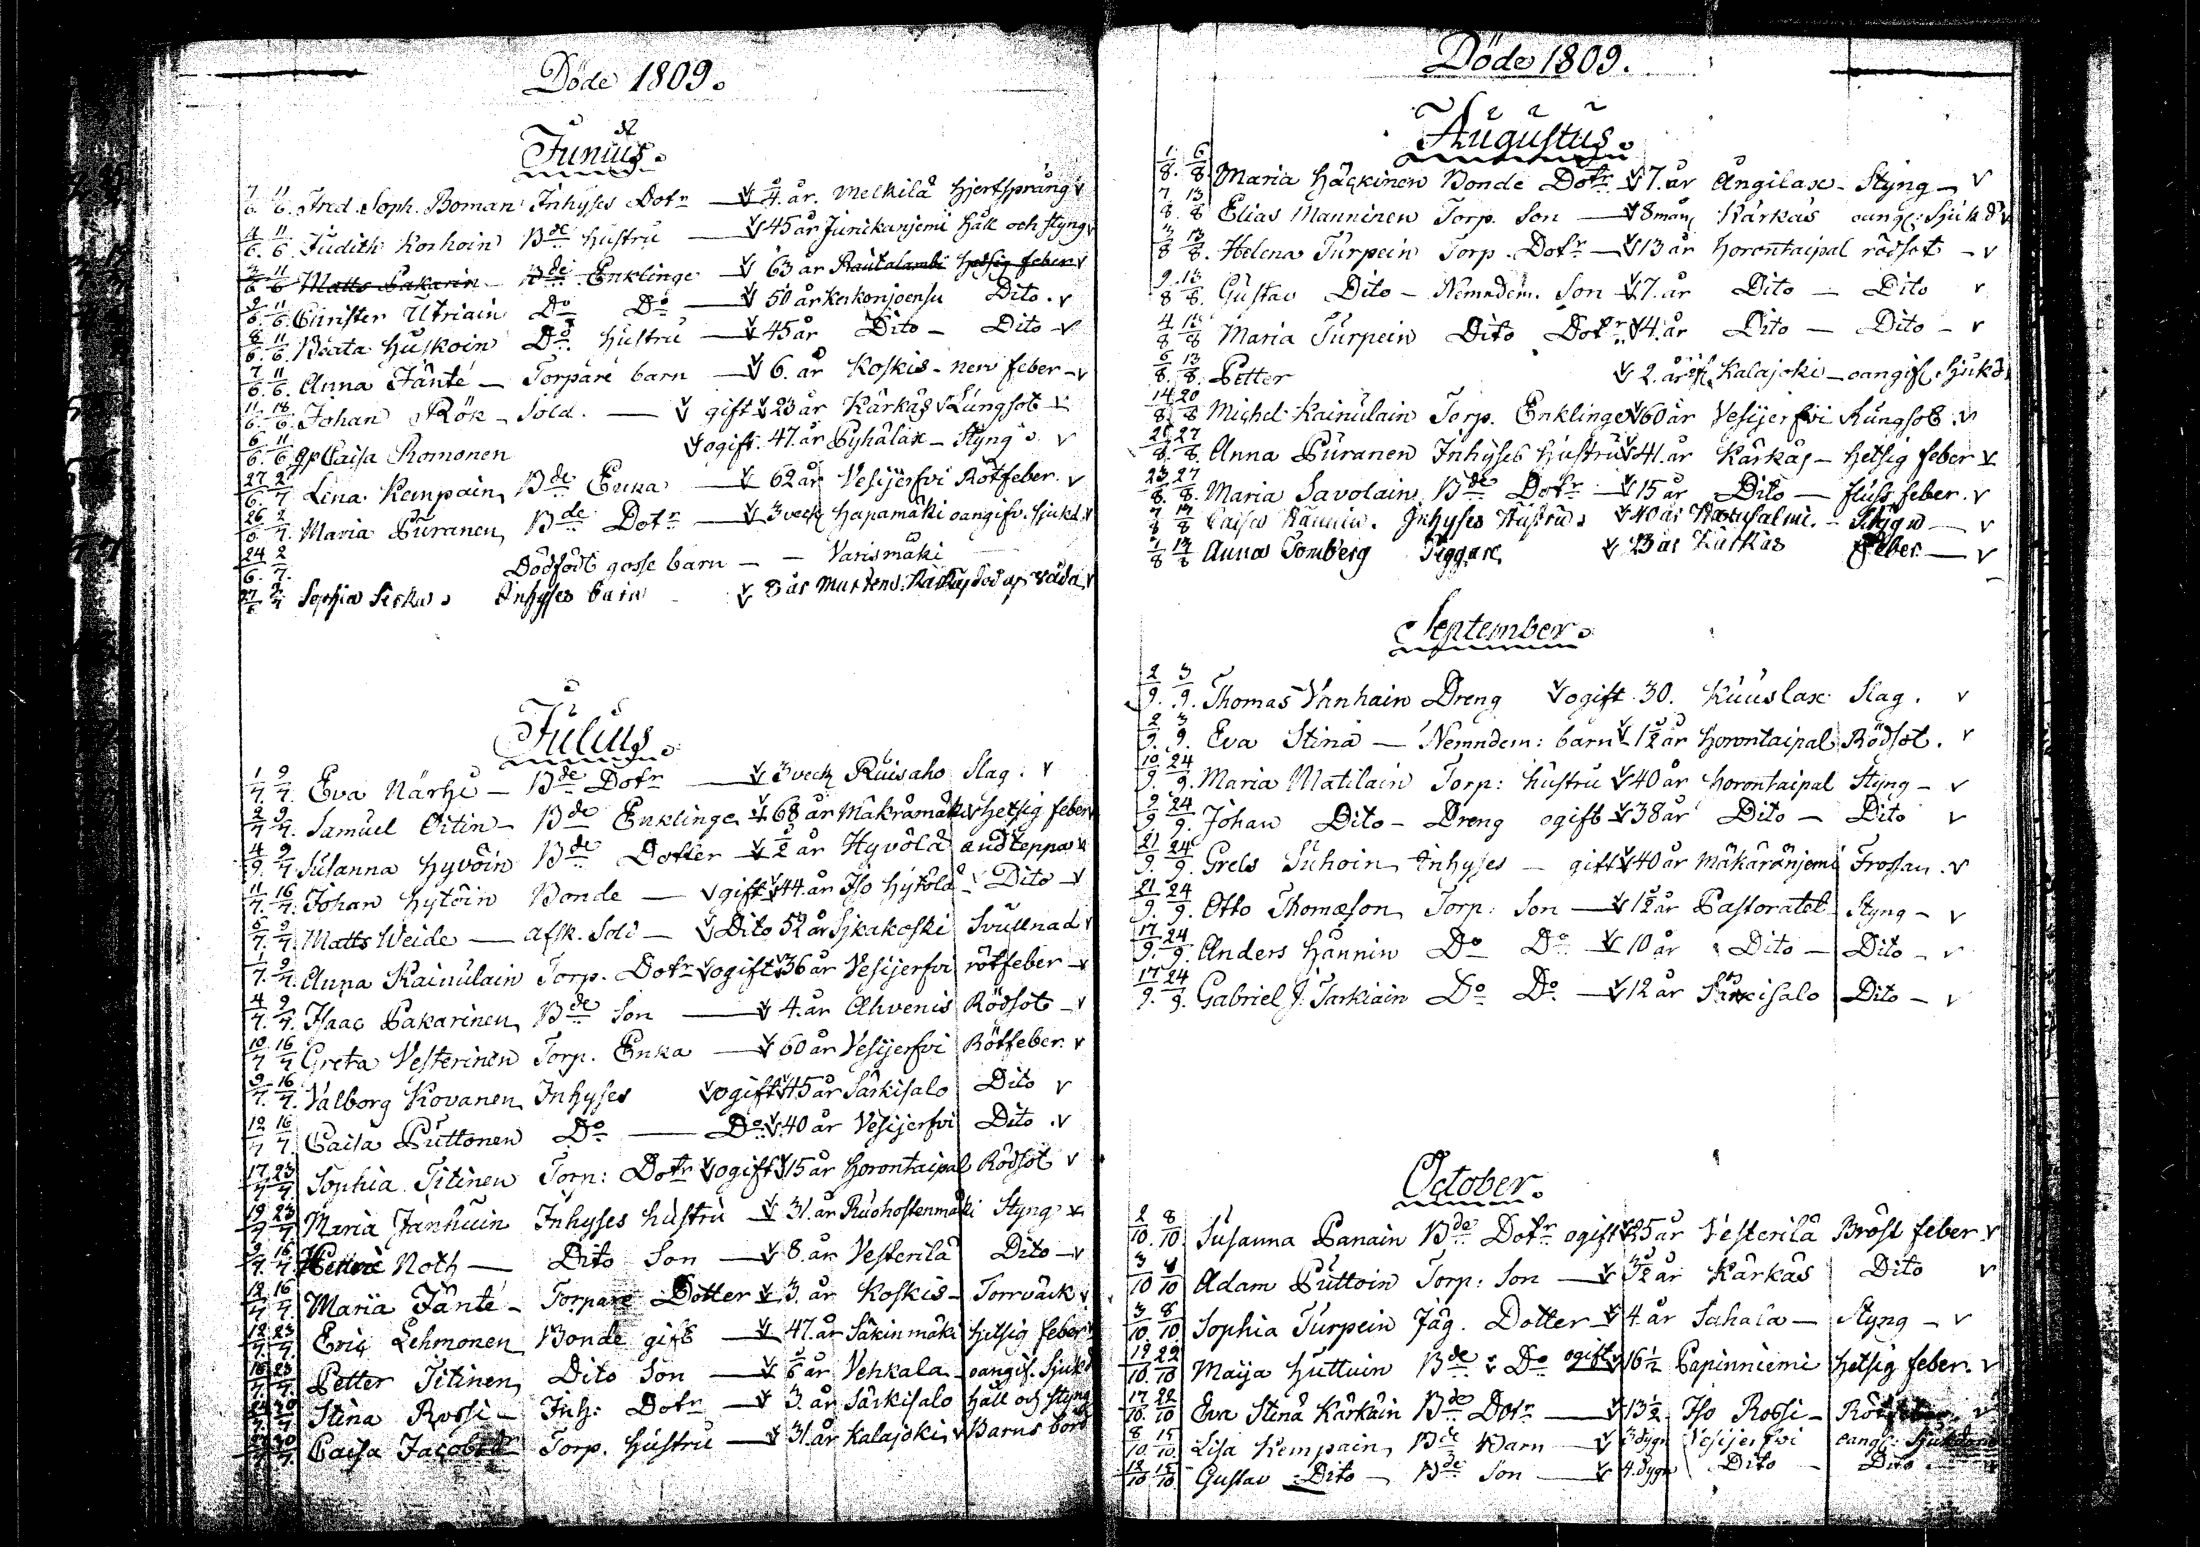 Döde 1809.
Junius.
7/6. 11/6. Fred. Soph. Boman Inhyses Dotr — 4. år. Melkilä hjertsprång v
4/6. 11/6 Judith Korhoin Bde hustru — 45 år Junickanjemi håll och styng v
3/6 11/6 Matts Pakarin — Bde Enklinge — 63 år Rautalambi hetsig feber v
9/6. 11/6. Christer Utriain Do Do — 50 år Kerkonjoensu Dito. v
8/6. 11/6 Beata Huskoin Do hustru — 45 år Dito — Dito v
7/6. 11/6. Anna Jänte — Torpare barn — 6. år Koskis - nerv feber — v
11/6. 18/6. Johan Rök — Sold. — gift 23 år Kärkäs Lungsot — v
6/6. 11/6 Caisa Romonen ogift. 47. år Pyhälax — Styng. v
27/6. 2/7 Lina Kempain Bde Enka — 62 år Vesijerfvi Rötfeber. v
26/6. 2/7. Maria Puranen Bde Dotr — 3 veck hapamäki oangifv. sjukd. v
24/6. 2/7. Dödfödt gosse barn — — Varismäki
27/6 2/7 Sophia Inhyses barn 8 år död af våda v
Julius.
1/7. 9/7. Eva Närhi — Bde Dotr — 3 veck Ruisaho Slag. v
2/7 9/7. Samuel Oitin — Bde Enklinge 68 år Mäkrämäki hetsig feber v
4/9. 9/7 Susanna Hyvöin Bde Dotter — 1/2 år Hyvölä andteppa v
11/7. 16/7. Johan Hytöin Bonde — gift 44. år Iso hytölä — Dito — v
5/7. 9/7 Matts Weide — afsk. Sold — Dito 52 år Sjkakoski Svullnad v
1/7. 9/7. Anna Kainulain Torp. Dotr ogift. 36 år Vesijerfvi rötfeber — v
4/7. 9/7. Isaac Pakarinen Bde Son — 4. år Ahvenis Rödsot — v
10/7 16/7 Greta Vesterinen Torp. Enka — 60 år Vesijerfvi Rötfeber. v
9/7. 16/7. Valborg Kovanen Inhyses ogift 45 år Särkisalo Dito v
12/7 16/7. Caisa Puttonen Do — Do 40 år Vesijerfvi Dito. v
17/7 23/7 Sophia Titinen Torp: Dotr ogift 15 år Horontaipal Rödsot v
19/7 23/7 Maria Janhuin Inhyses hustru — 31. år Ruohostenmäki Styng v
9/7. 16/7 Noth — Dito Son — 8. år Vesterilä Dito — v
12/7 16/7 Maria Jänte — Torpare Dotter 3. år Koskis — Torrväck v
12/7. 23/7. Eric Lehmonen Bonde gift — 47. år Säkinmäki hetsig feber v
18/7 23/7 Petter Titinen Dito Son — år Vehkala — oangif. Sjukd
Stina Rossi — Inh: Dotr — 3. år Särkisalo håll och styng
Caisa Torp. hustru — 31. år Kalajoki Barns börd
Döde 1809.
Augustus.
1/8. 6/8 Maria Häckinen Bonde Dotr 7. år Ängilax — Styng — v
7/8. 13/8 Elias Manninen Torp. Son — 8 mån Kärkäs oang: Sjukd v
3/8 13/8. Helena Turpein Torp. Dotr — 13 år Horontaipal rödsot — v
9/8 13/8. Gustav Dito — Nemndem. Son — 7. år Dito — Dito v
4/8 13/8 Maria Turpein Dito Dotr. 4. år Dito — Dito — v
6/8. 13/8. Petter 2. år Kalajoki — oangif. Sjukd v
14/8 20/8 Michel Kainulain Torp. Enklinge 60 år Vesijerfvi Lungsot. v
21/8. 27/8. Anna Puranen Inhyses hustru 41. år Kärkäs — hetsig feber v
23/8. 27/8. Maria Savolain Bde Dotr — 15 år Dito — fluss feber. v
7/8 13/8 Caisa Hännin. Inhyses Hustru. 40 år — Styng — v
7/8 13/8 Anna Tomberg Tiggare 23 år Kärkäs feber — v
September.
2/9. 3/9. Thomas Vanhain Dreng ogift 30. Kuuslax Slag. v
2/9. 3/9. Eva Stina — Nemndem: barn — 1 1/2 år Horontaipal Rödsot. v
10/9. 24/9. Maria Matilain Torp: hustru 40 år Horontaipal Styng — v
9/9 24/9. Johan Dito — Dreng ogift 38 år Dito — Dito v
21/9. 24/9. Grels Suhoin Inhyses — gift 40 år Mäkäränjemi Frossan. v
21/9. 24/9. Otto Thomæson Torp: Son — 1 1/2 år Pastoratet Styng — v
17/9. 24/9. Anders Hännin Do Do — 10 år Dito — Dito — v
17/9. 24/9. Gabriel J. Tarkiain Do Do. — 12 år Särkisalo Dito — v
October.
2/10. 8/10. Susanna Panain Bde Dotr ogift 25 år Vesterilä Bröst feber v
3/10 8/10 Adam Puttoin Torp: Son — år Kärkäs Dito v
3/10. 8/10 Sophia Turpein Jäg. Dotter — 4 år Sahala — Styng — v
19/10. 22/10 Maija Huttuin Bde Do ogift 16 1/2 Papinniemi hetsig feber. v
17/10. 22/10 Eva Stina Kärkäin Bde Dotr — 13 1/2 Iso Rossi —
8/10 15/10 Lisa Kempain Bde Barn — 3 dygn Vesijerfvi oang: Sjukdom
12/10 15/10 Gustav Dito — Bde Son — 4. dygn Dito — Dito